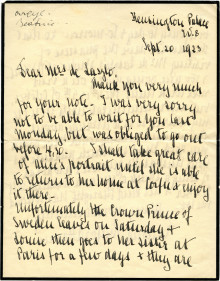 Kensington Palace
W.8
Sept. 20 1923
Dear Mrs de Laszlo,
Thank you very much
for your note - I was very sorry
not to be able to wait for you last
Monday, but was obliged to go out
before 4.30. I shall take great care
of Alice's portrait until she is able
to return to her home at Corfu & enjoy
it there.
Unfortunately the Crown Prince of
Sweden leaves on Saturday &
Louise then goes to her sister at
Paris for a few days & they are